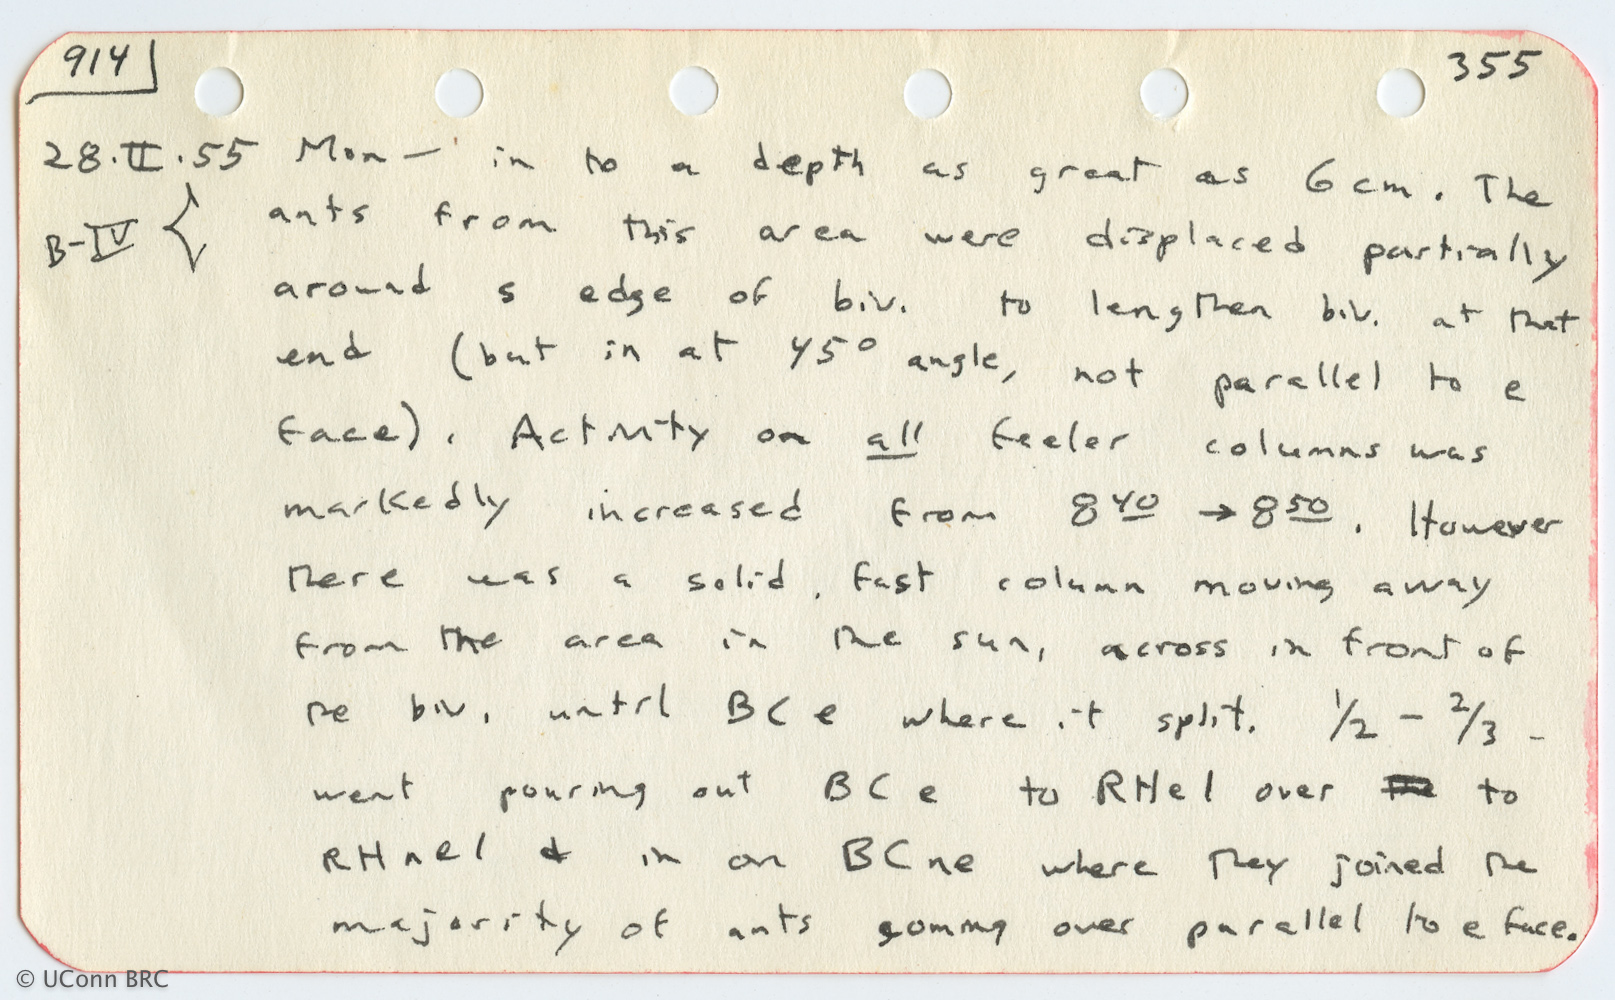 914
355
28.II.55 Mon — in to a depth as great as 6 cm. The
B-IV { ants from this area were displaced partially
around s edge of biv. to lengthen biv. at that
end (but in at 45° angle, not parallel to e
face). Activity on all feeler columns was
markedly increased from 8 40 → 8 50. However
there was a solid, fast column moving away
from the area in the sun, across in front of
the biv. until BCe where it split. 1/2 - 2/3 -
went pouring out BCe to RHe1 over to
RHne1 & in on BCne where they joined the
majority of ants coming over parallel to e face.
© UConn BRC